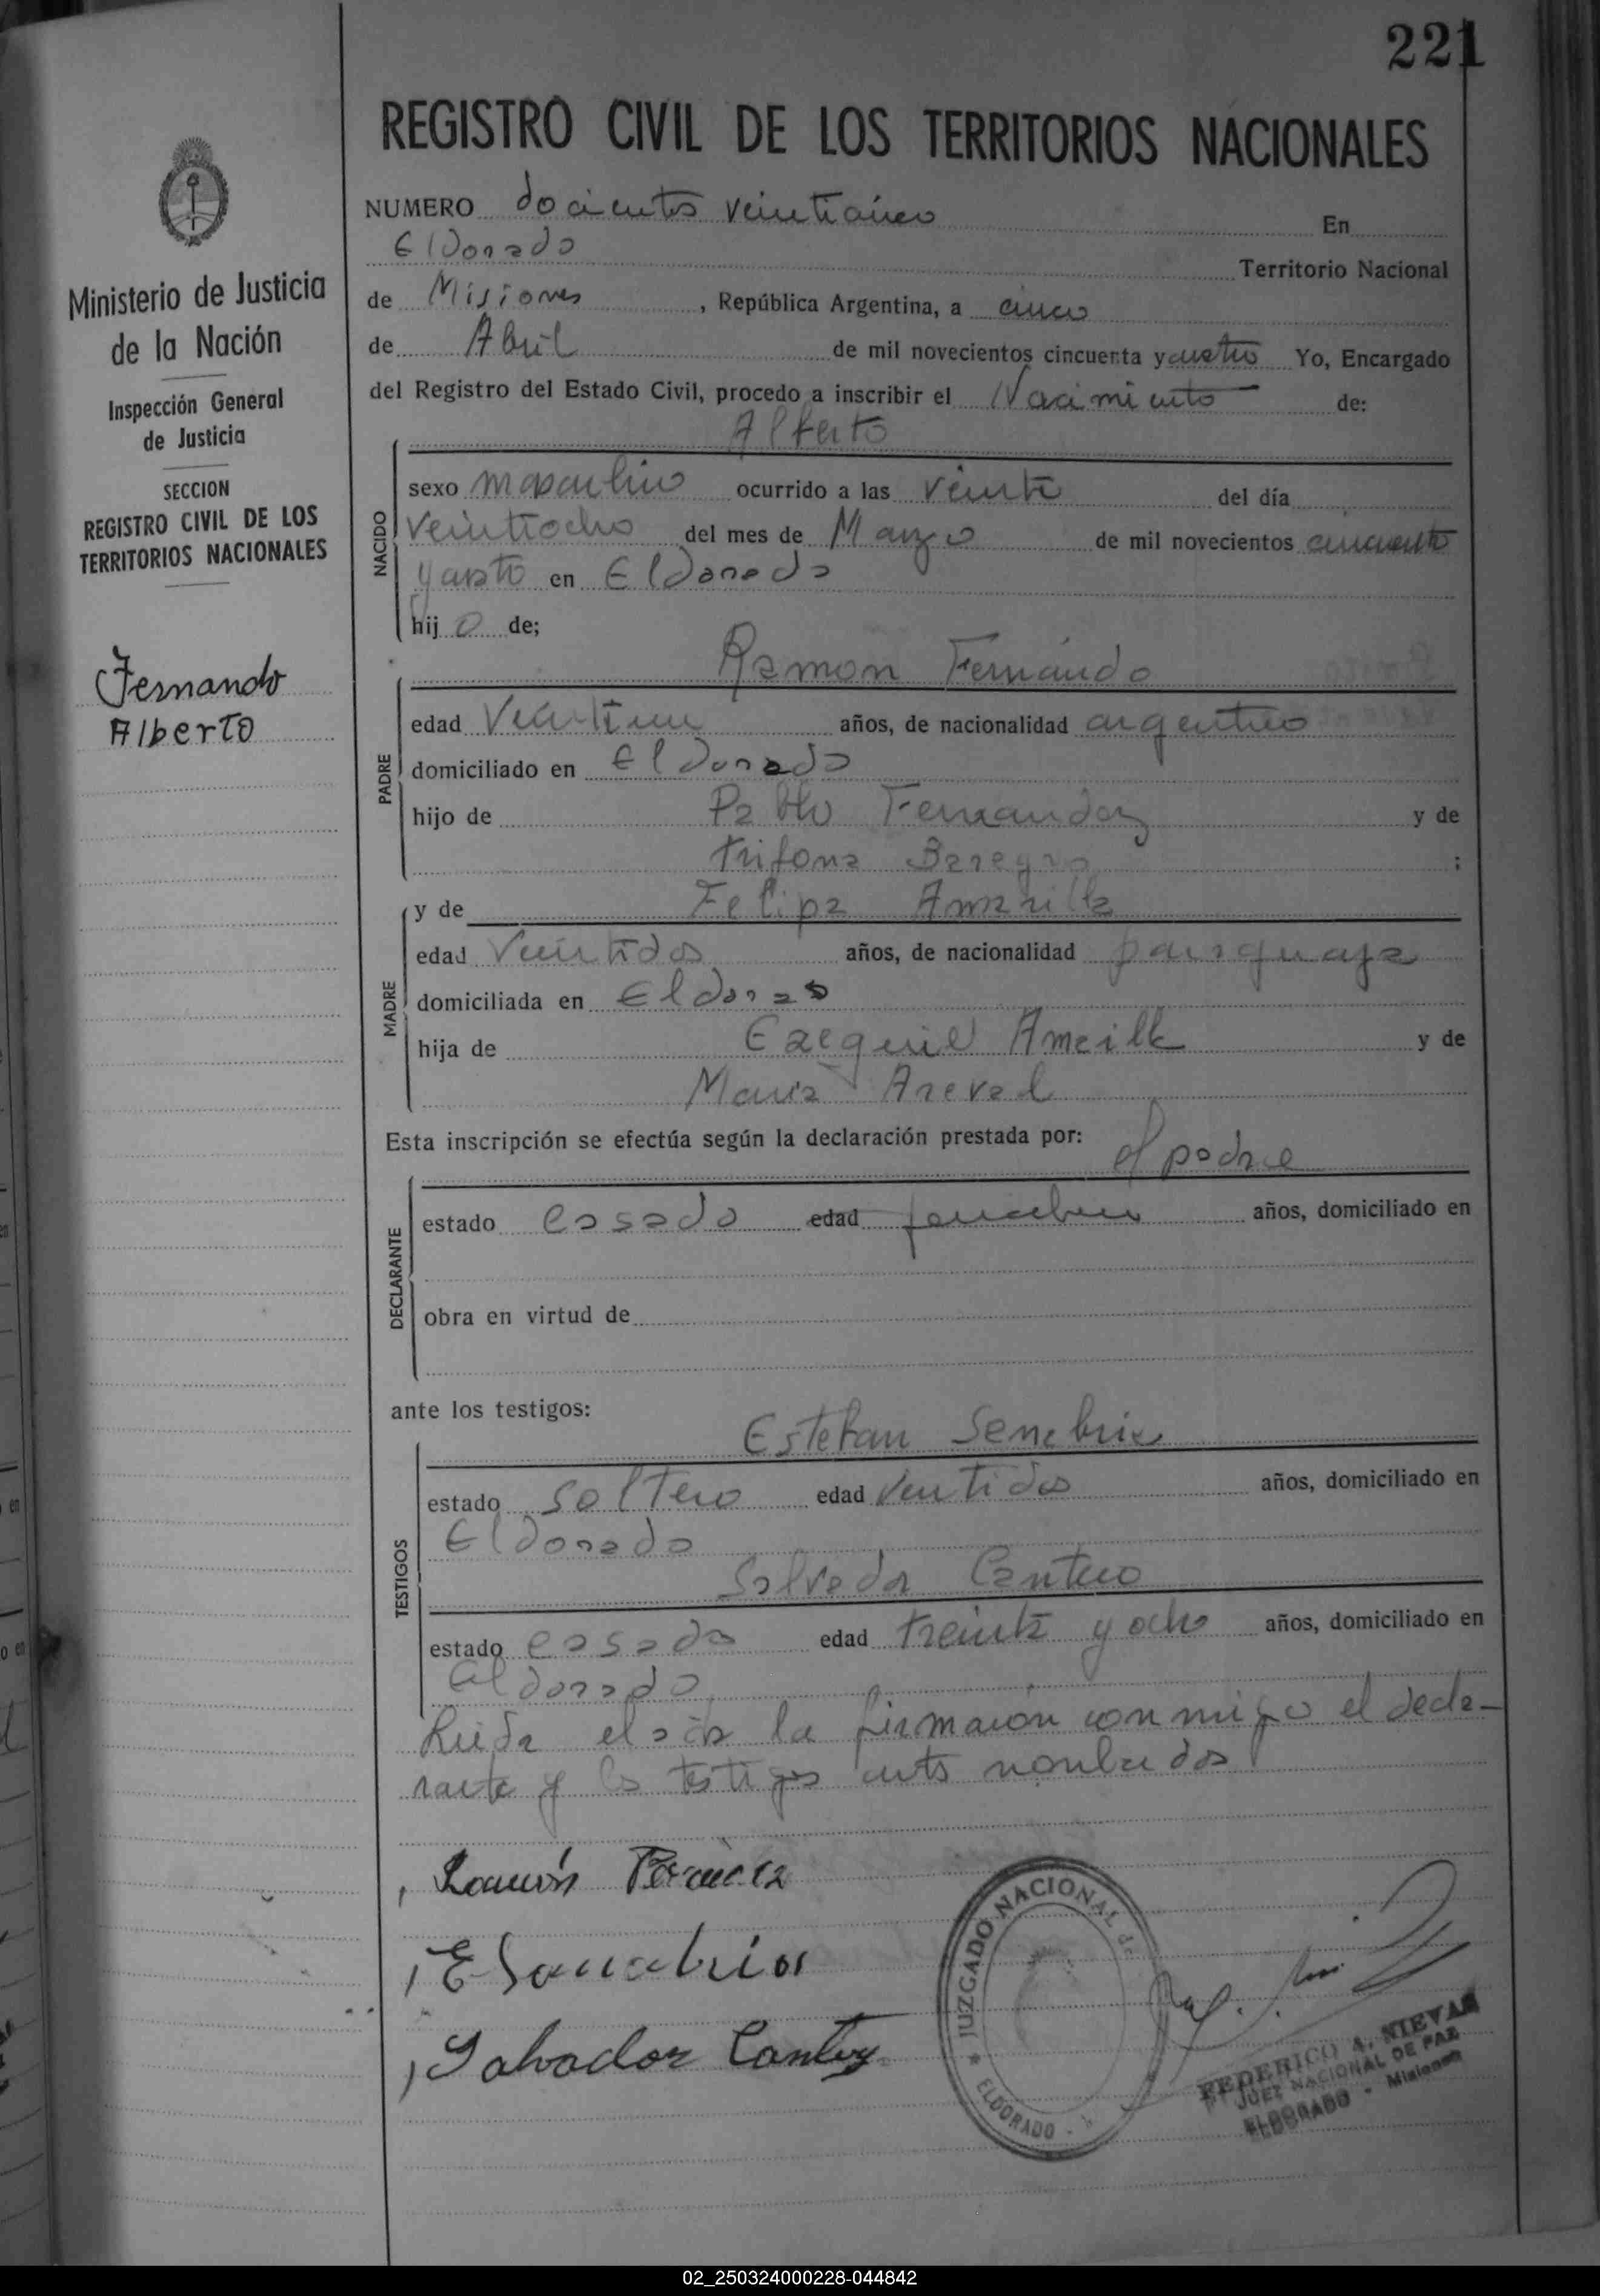 221
REGISTRO CIVIL DE LOS TERRITORIOS NACIONALES
NUMERO docientos veinticinco En
Eldorado Territorio Nacional
de Misiones, República Argentina, a cinco
de Abril de mil novecientos cincuenta y cuatro Yo, Encargado
del Registro del Estado Civil, procedo a inscribir el Nacimiento de:
Ministerio de Justicia
de la Nación
Inspección General
de Justicia
SECCION
REGISTRO CIVIL DE LOS
TERRITORIOS NACIONALES
Fernando
Alberto
Alberto
NACIDO
sexo masculino ocurrido a las veinte del día
veintiocho del mes de Marzo de mil novecientos cincuenta
en Eldorado
hijo de;
Ramon Fernando
PADRE
edad años, de nacionalidad argentino
domiciliado en Eldorado
hijo de Pablo Fernandez y de
Trifona ;
MADRE
y de Felipa Amarilla
edad veintidos años, de nacionalidad paraguaya
domiciliada en
hija de y de
Maria
Esta inscripción se efectúa según la declaración prestada por:
el padre
DECLARANTE
estado casado edad años, domiciliado en
obra en virtud de
ante los testigos:
TESTIGOS
Esteban
estado soltero edad ventidos años, domiciliado en
Eldorado
Salvador Cantero
estado casado edad treinta y ocho años, domiciliado en
Eldorado
Leida el acta la firmaron conmigo el decla-
rante y los testigos nombrados
Ramón
E Sanabria
Salvador
JUZGADO NACIONAL de
ELDORADO
FEDERICO A. NIEVAS
JUEZ NACIONAL DE PAZ
ELDORADO - Misiones
02_250324000228-044842